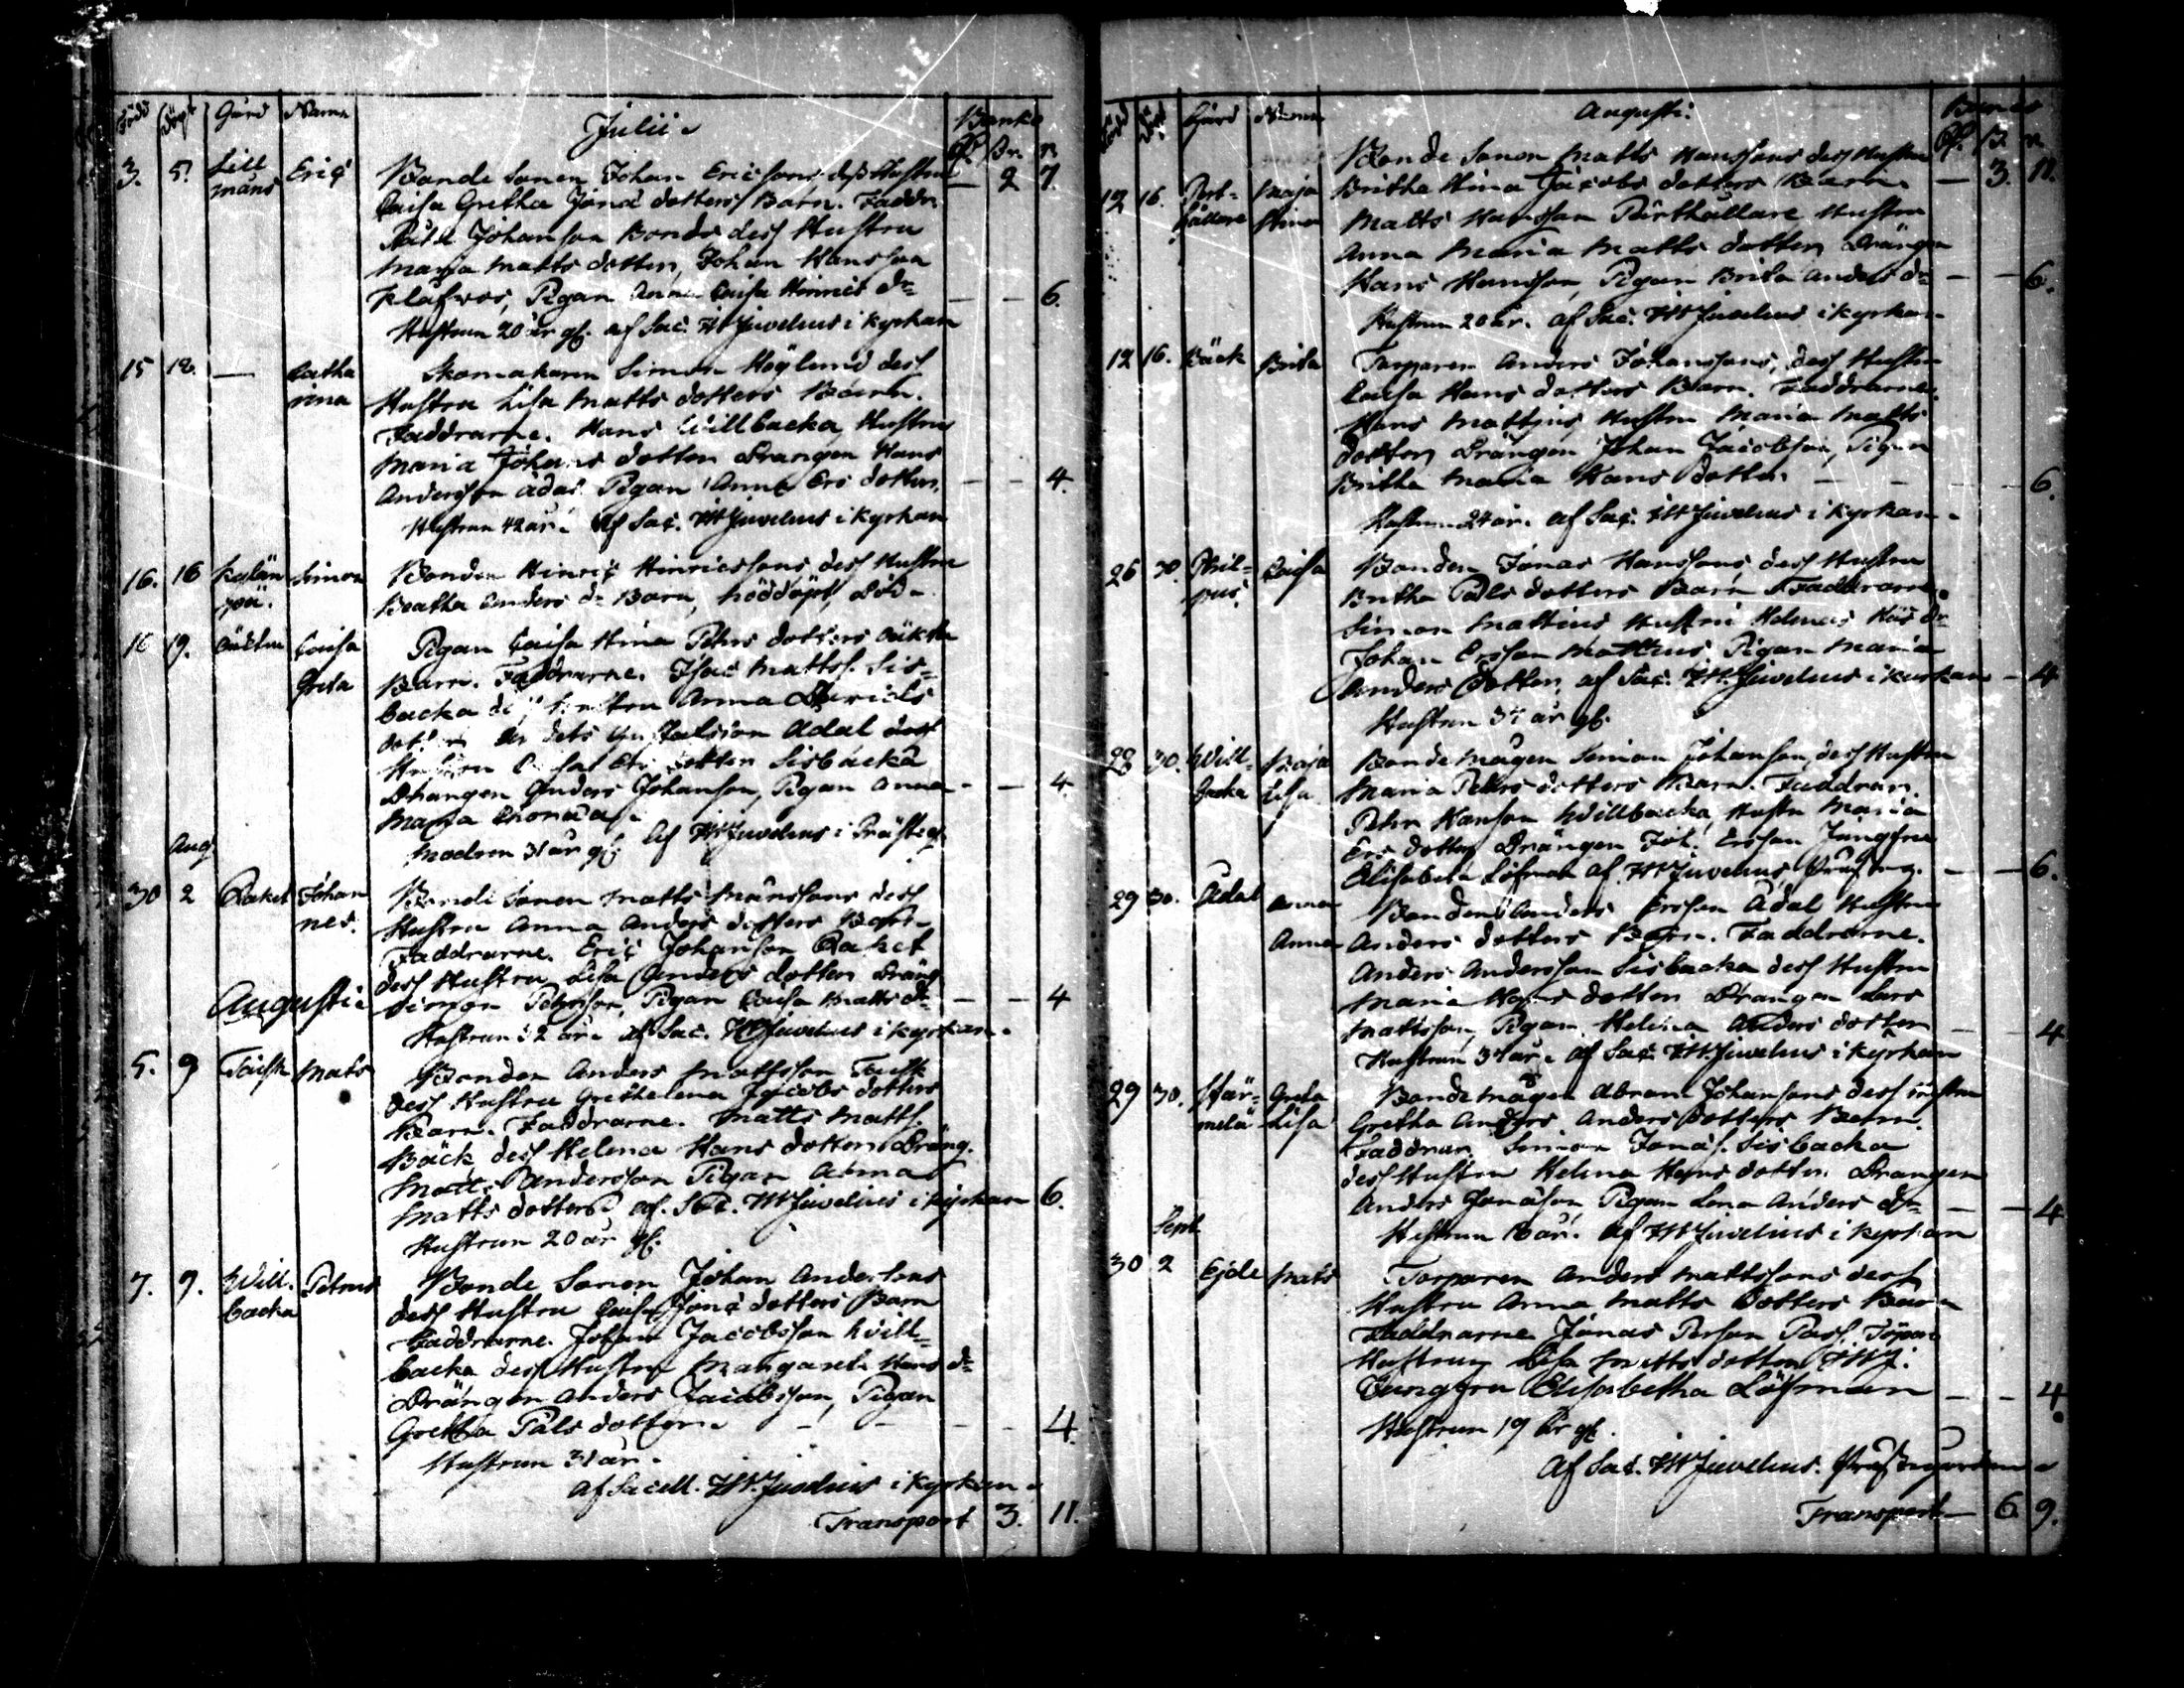 Född Döpt Gård Namn Julii Banko
Rf. Br. r.
3. 5. Lill Eric Bonde Sonen Johan Ericsons dess Hustru — 2 7.
mans Caisa Gretha Jonæ dotters Barn. Faddr.
Johanson Bonde dess Hustru
Maria Matts dotter, Johan Hansson
Klåfvos, Pigan Anna Caisa Hinrics dr — — 6.
Hustrun 20 år gl. af Sac. JW Juvelius i kyrkan
15 18. — Catha Skomakaren Simon Höglund dess
rina Hustru Lisa Matts dotters Barn.
Faddrarne. Hans Willbacka Hustru
Maria Johans dotter Drängen Hans
Andersson Ådal Pigan Anna Ers dotter. — — 4.
Hustrun 42 år. af Sac. JW Juvelius i kyrkan
16. 16 Simon Bonden Hinric Hinricssons dess Hustru
på. Beatha Anders dr Barn, nöddöpt, död
16 19. Caisa Pigan Caisa Stina Petters dotters
Greta Barn. Faddrarne. Isac Mattss. Sis-
backa Hustru Anna
Ådal dess
Hustru dotter Sisbacka
Drängen Anders Johanson, Pigan Anna — — 4.
Maria
Modren 31 år gl. af JW Juvelius i Prästeg.
Aug.
30 2 Raket Johan Bonde Sonen Matts Månssons dess
nes. Hustru Anna Anders dotters Barn
Faddrarne. Eric Johanson Raket
dess Hustru Lisa Anders dotter Dräng
Augusti Simon Petersson, Pigan Caisa Matts dr — — 4
Hustrun 32 år. af Sac. JW Juvelius i kyrkan.
5. 9 Taisk Mats Bonden Anders Mattsson
dess Hustru Grethelena Jacobs dotters
Barn. Faddrarne. Matts Matts.
Bäck dess Helena Hans dotter Dräng.
Matts Andersson Pigan Anna
Matts dotter af. Sac. JW Juvelius i kyrkan 6.
Hustrun 20 år gl.
7. 9. Will- Petrus Bonde Sonen Johan Andersons
backa dess Hustru Caisa Jonæ dotters Barn
Faddrarne. Johan Jacobsson Will-
backa dess Hustru Margareta Hans dr
Drängen Anders Jacobsson, Pigan
Gretha Påls dotter. — — — 4.
Hustrun 31 år.
af Sacell. JW. Juvelius i kyrkan.
Transport 3. 11.
Född Döpt Gård Namn Augusti: Banco
Bonde Sonen Matts Hanssons dess Hustru Rf. B. r.
12 16. Port- Maja Britha Stina Jacobs dotters Barn. — 3. 11.
hållare Stina Matts Hansson Porthållare Hustru
Anna Maria Matts dotter, Drängen
Hans Hansson, Pigan Brita Anders dr — — 6.
Hustrun 20 år. af Sac. JW Juvelius i kyrkan
12 16. Bäck Brita Torparen Anders Johanssons, dess Hustru
Caisa Hans dotters Barn. Faddrarne.
Hans Mattsius Hustru Maria Matts
dotter, Drängen Johan Jacobson, Pigan
Britha Maria Hans dotter — — — 6.
Hustrun 24 år. af Sac. JW Juvelius i kyrkan.
26 30. Phil- Caisa Bonden Jonas Hanssons, dess Hustru
pus. Britha Påls dotters Barn Faddrarne.
Simon Mattius Hustru Helena dr
Johan Ersson Mattius Pigan Maria
Anders dotter, af Sac. JW. Juvelius i kyrkan — 4
Hustrun 34 år gl.
28 30. Will- Maja Bonde mågen Simon Johanson, dess Hustru
backa Lisa Maria Petters dotters Barn. Faddrar.
Petter Hanson Willbacka, Hustru Maria
Ers dotter, Drängen Joh. Ersson Jungfru
Elisabeta Löfman af. JW Juvelius Prästeg. — — 6.
29 30. Ådal Anna Bonden Anders Ersson Ådal Hustru
Anna Anders dotters Barn. Faddrarne.
Anders Andersson Sisbacka dess Hustru
Maria Hans dotter Drängen Lars
Mattsson, Pigan Helena Anders dotter — — 4
Hustrun 34 år. af Sac. JW. Juvelius i kyrkan
29 30. Här- Greta Bonde mågen Abram Johansons dess Hustru
mälä Lisa Gretha Anders Anders dotters Barn.
Faddrar. Simon Jonas. Sisbacka
dess Hustru Helena Hans dotter. Drängen
Anders Jonasson Pigan Lena Anders dr — — 4
Sept. Hustrun år. af JW Juvelius i kyrkan
30 2 Ejde Mats Torparen Anders Mattssons dess
Hustru Anna Matts dotters Barn
Faddrarne Jonas Person
Hustrun Lisa Matts dotter
Jungfru Elisabetha Löfman — — 4.
Hustrun 19 år gl.
af Sac. JW Juvelius. Prästegården
Transport — 6 9.